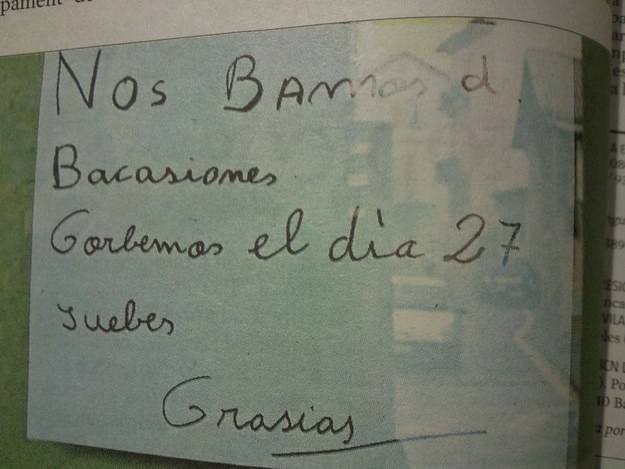 pament de
Nos Bamos d
Bacasiones
Gorbemos el dia 27
Juebes
Grasias